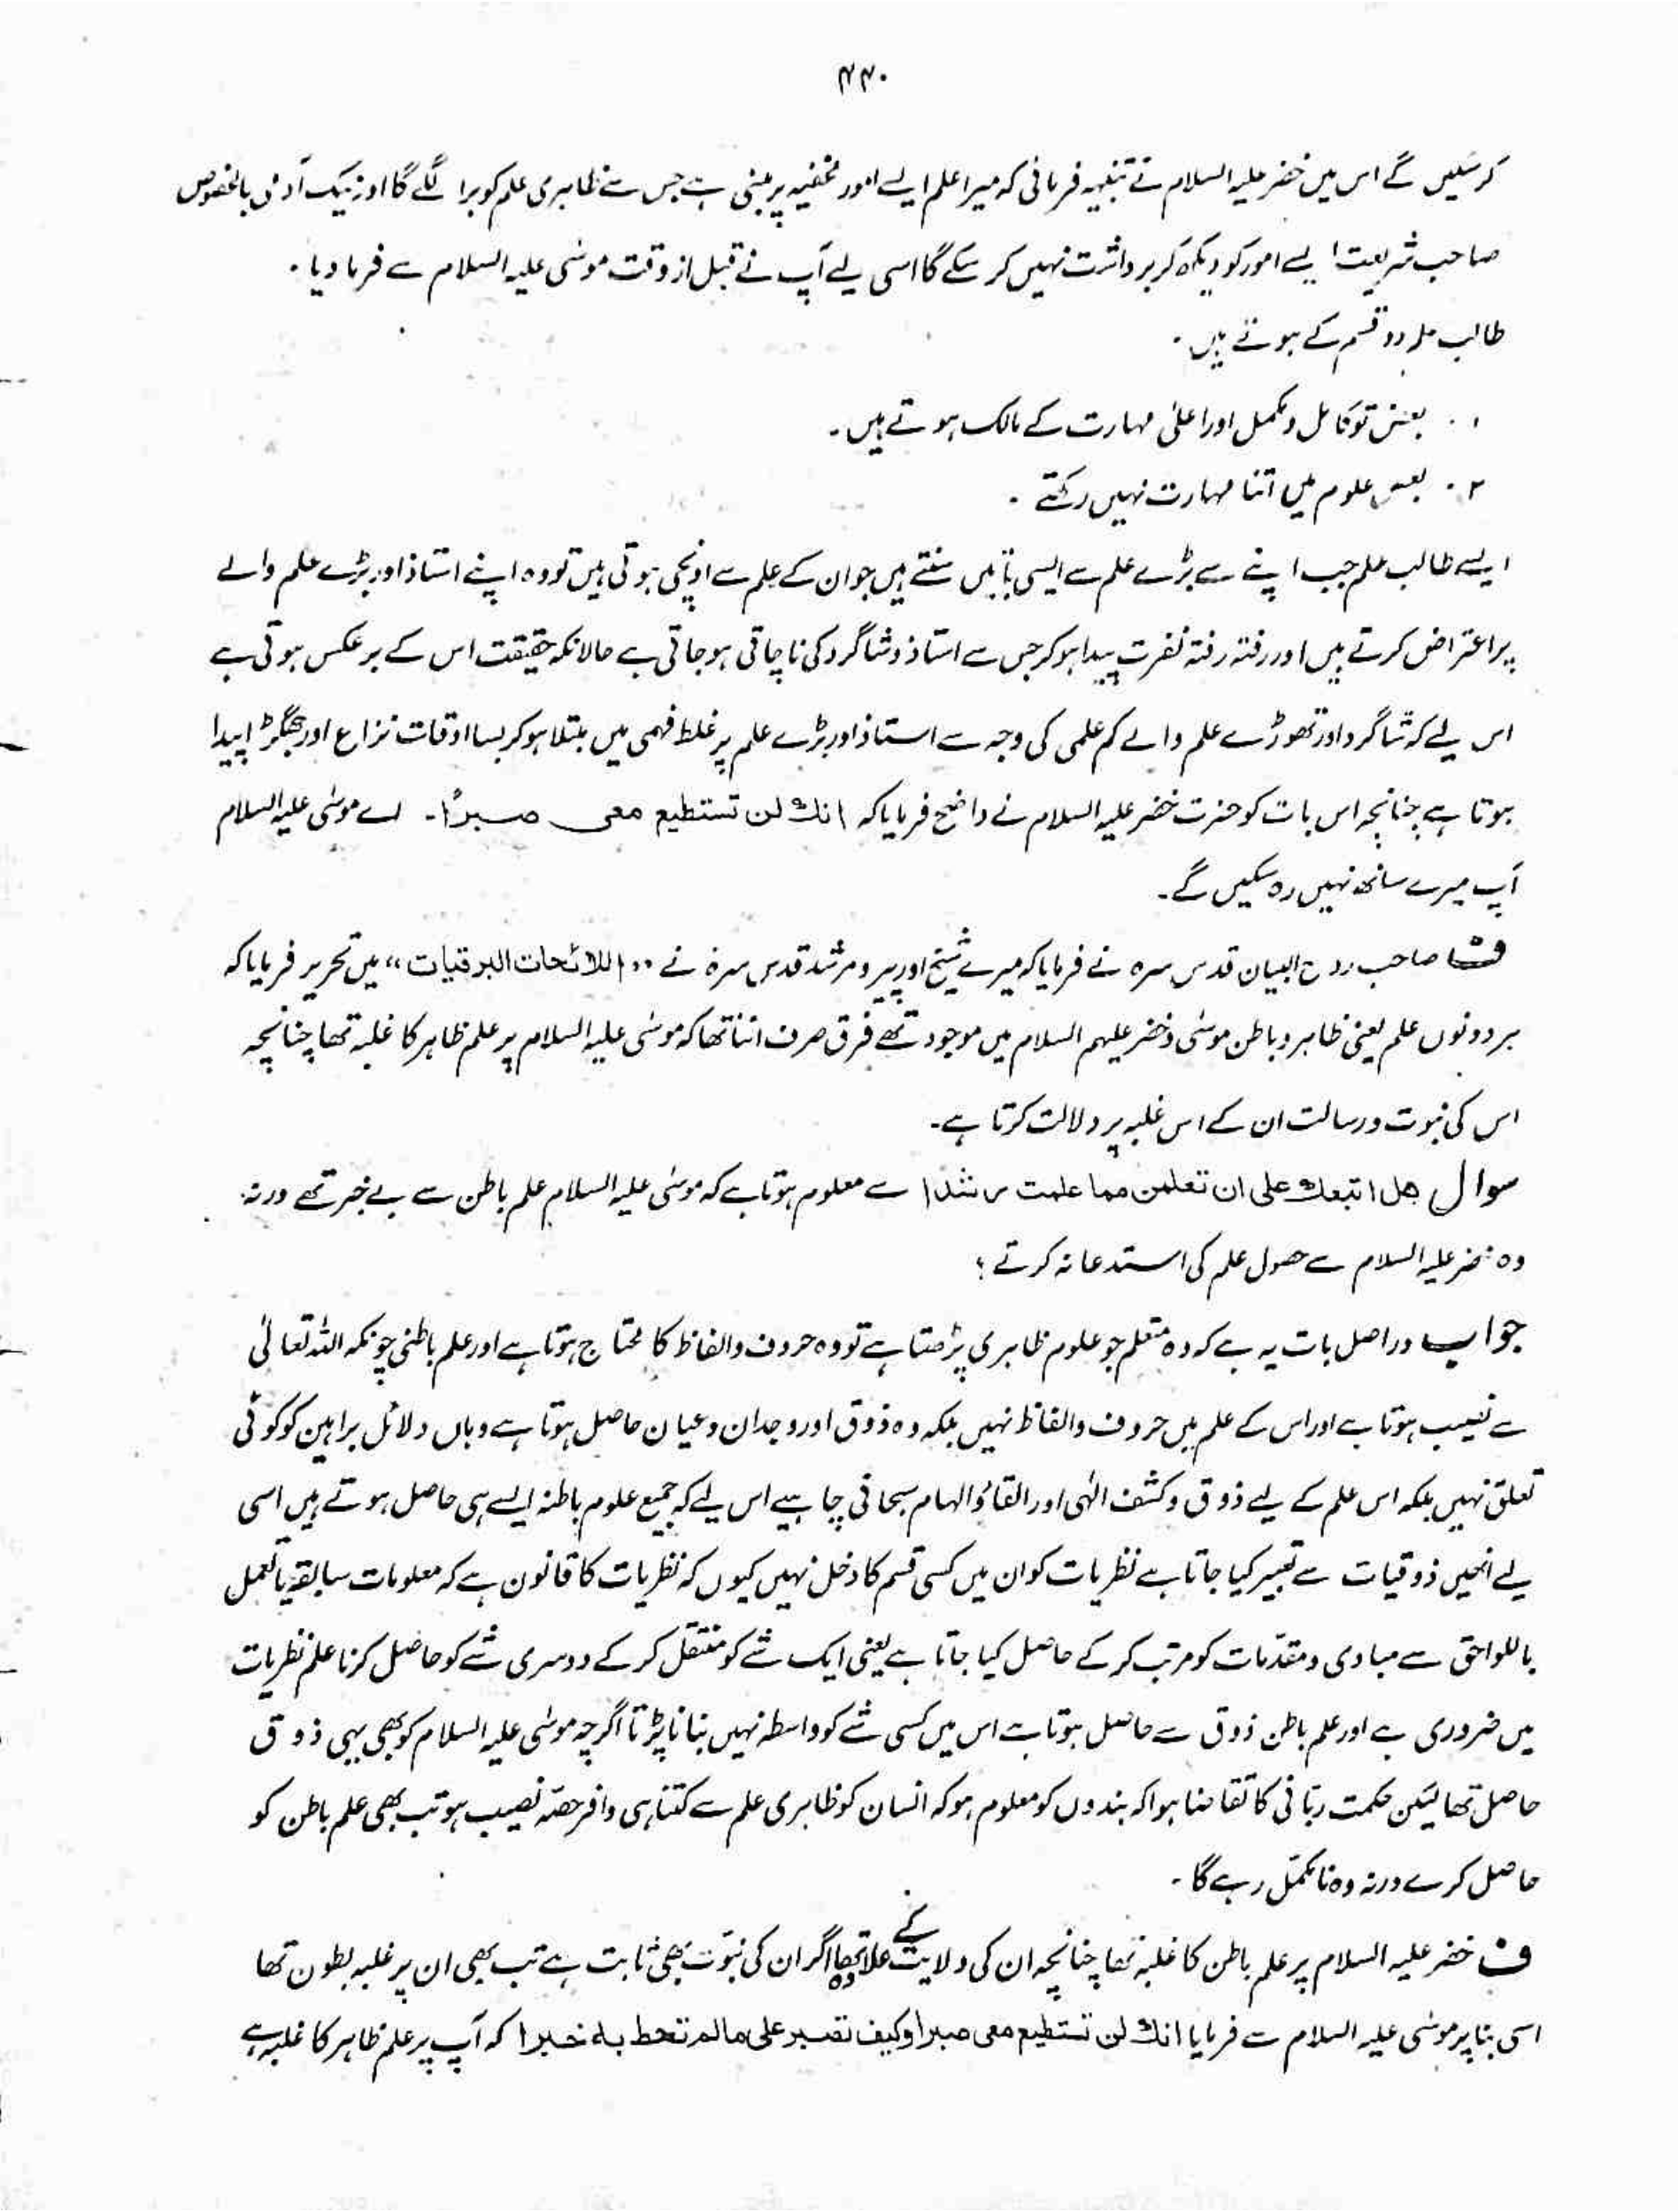 ۴۴۰
کرسکیں گے اس میں خضر علیہ السلام نے تنبیہ فرمائی کہ میرا علم ایسے امور مخفیہ پر مبنی ہے جس سے ظاہری علم کو برا لگے گا اور نیک آدمی بالخصوص
صاحب شریعت ایسے امور کو دیکھ کر برداشت نہیں کر سکے گا اسی لیے آپ نے قبل از وقت موسٰی علیہ السلام سے فرما دیا ۔
طالب علم دو قسم کے ہوتے ہیں ۔
۱ ۔ بعض تو کامل و مکمل اور اعلٰی مہارت کے مالک ہوتے ہیں ۔
۲ ۔ بعض علوم میں اتنا مہارت نہیں رکھتے ۔
ایسے طالب علم جب اپنے سے بڑے علم سے ایسی باتیں سنتے ہیں جو ان کے علم سے اونچی ہوتی ہیں تو وہ اپنے استاذ اور بڑے علم والے
پر اعتراض کرتے ہیں اور رفتہ رفتہ نفرت پیدا ہو کر جس سے استاذ و شاگرد کی ناچاقی ہو جاتی ہے حالانکہ حقیقت اس کے برعکس ہوتی ہے
اس لیے کہ شاگرد اور تھوڑے علم والے کم علمی کی وجہ سے استاذ اور بڑے علم پر غلط فہمی میں مبتلا ہو کر بسا اوقات نزاع اور جھگڑا پیدا
ہوتا ہے چنانچہ اس بات کو حضرت خضر علیہ السلام نے واضح فرمایا کہ انك لن تستطیع معی صبرًا ۔ اے موسٰی علیہ السلام
آپ میرے ساتھ نہیں رہ سکیں گے ۔
ف صاحب روح البیان قدس سرہ نے فرمایا کہ میرے شیخ اور پیر و مرشد قدس سرہ نے ”اللائحات البرقیات“ میں تحریر فرمایا کہ
ہر دونوں علم یعنی ظاہر و باطن موسٰی و خضر علیہم السلام میں موجود تھے فرق صرف اتنا تھا کہ موسٰی علیہ السلام پر علم ظاہر کا غلبہ تھا چنانچہ
اس کی نبوت و رسالت ان کے اس غلبہ پر دلالت کرتا ہے ۔
سوال هل اتبعك علی ان تعلمن مما علمت رشدا سے معلوم ہوتا ہے کہ موسٰی علیہ السلام علم باطن سے بے خبر تھے ورنہ
وہ خضر علیہ السلام سے حصول علم کی استدعا نہ کرتے ؟
جواب دراصل بات یہ ہے کہ وہ متعلم جو علوم ظاہری پڑھتا ہے تو وہ حروف و الفاظ کا محتاج ہوتا ہے اور علم باطنی چونکہ اللہ تعالٰی
سے نصیب ہوتا ہے اور اس کے علم میں حروف و الفاظ نہیں بلکہ وہ ذوق اور وجدان و عیان حاصل ہوتا ہے وہاں دلائل براہین کو کوئی
تعلق نہیں بلکہ اس علم کے لیے ذوق و کشف الٰہی اور القاءُ و الہام سبحانی چاہیے اس لیے کہ جمیع علوم باطنہ ایسے ہی حاصل ہوتے ہیں اسی
لیے انھیں ذوقیات سے تعبیر کیا جاتا ہے نظریات کو ان میں کسی قسم کا دخل نہیں کیوں کہ نظریات کا قانون ہے کہ معلومات سابقہ یا تعمل
باللواحق سے مبادی و مقدمات کو مرتب کر کے حاصل کیا جاتا ہے یعنی ایک شے کو منتقل کر کے دوسری شے کو حاصل کرنا علم نظریات
میں ضروری ہے اور علم باطن ذوق سے حاصل ہوتا ہے اس میں کسی شے کو واسطہ نہیں بنانا پڑتا اگرچہ موسٰی علیہ السلام کو بھی یہی ذوق
حاصل تھا لیکن حکمت ربّانی کا تقاضا ہوا کہ بندوں کو معلوم ہو کہ انسان کو ظاہری علم سے کتنا ہی وافر حصّہ نصیب ہو تب بھی علم باطن کو
حاصل کرے ورنہ وہ نامکمّل رہے گا ۔
ف خضر علیہ السلام پر علم باطن کا غلبہ تھا چنانچہ ان کی ولایت کے علاوہ اگر ان کی نبوّت بھی ثابت ہے تب بھی ان پر غلبہ بطون تھا
اسی بنا پر موسٰی علیہ السلام سے فرمایا انك لن تستطیع معی صبرا وکیف تصبر علی مالم تحط به خبرا کہ آپ پر علم ظاہر کا غلبہ ہے